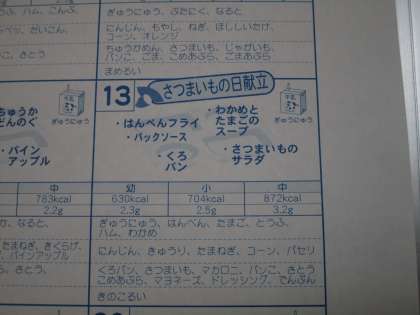 ハム、こんぶ
ぎゅうにゅう、ぶたにく、なると
にんじん、もやし、ねぎ、ほししいたけ、
コーン、オレンジ
ちゅうかめん、さつまいも、じゃがいも、
パンこ、ごま、こめあぶら、ごまあぶら
まめるい
13 さつまいもの日献立
ちゅうか
どんのぐ
ぎゅうにゅう
・パイン
アップル
・はんぺんフライ
・パックソース
・くろ
パン
・わかめと
たまごの
スープ
・さつまいもの
サラダ
ぎゅうにゅう
中 幼 小 中
783kcal 630kcal 704kcal 872kcal
2.2g 2.3g 2.5g 3.2g
なると、
たまねぎ、きくらげ、
パインアップル
さとう、
ぎゅうにゅう、はんぺん、たまご、とうふ、
ハム、わかめ
にんじん、きゅうり、たまねぎ、コーン、パセリ
くろパン、さつまいも、マカロニ、パンこ、さとう
こめあぶら、マヨネーズ、ドレッシング、でんぷん
きのこるい